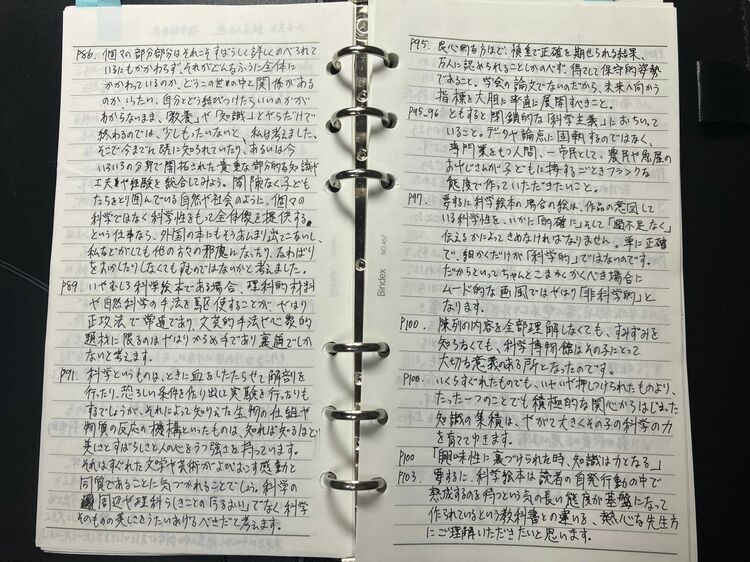 P86. 個々の部分部分はそれこそすばらしく詳しくのべられて
いるにもかかわらず、それがどんなふうに全体に
かかわっているのか、どうこの世の中と関係がある
のか、いったい、自分とどう結びつけたらいいのかが
わからないまま、「教養」や「知識」とやらだけで
終わるのでは、少しもったいないと、私は考えました。
そこで今までに既に知られていたり、あるいは今
いろいろの分野で開拓された貴重な部分的な知識や
工夫や経験を総合してみよう。間隙なく子ども
たちをとり囲んでいる自然や社会のように、個々の
科学ではなく科学性をもって全体像を提供する。
という仕事なら、外国の本にもそうあんまり出てこないし、
私などがしても他の方々の邪魔になったり、なわばり
をおかしたりしなくても報わではないかと考えました。
P89. いやしくも科学絵本である場合、理科的材料
や自然科学の手法を駆使することが、やはり
正攻法で常道であり、文芸的手法や心象的
題材に限るのはやはりからめ手であり裏頭でしか
ないと考えます。
P91. 科学というものは、ときに血をしたたらせて解剖を
行ったり、恐ろしい条件を作り出して実験を行ったりも
するでしょうが、それによって知りえた生物の仕組や
物質の反応の機構といったものは、知れば知るほど
美しさとすばらしさと人の心をうつ強さを持っています。
それはすぐれた文学や芸術がよびさます感動と
同質であることに気づかれることでしょう。科学の
周辺や理科らしきことの「うるおい」でなく科学
そのものの美しさをうたいあげるべきだと考えます。
P95. 良心的な方ほど、慎重で正確を期せられる結果、
万人に認められることしかのべず、得てして保守的姿勢
であること。学会の論文でないのだから、未来へ向かう
指標を大胆に率直に展開すべきこと。
P95-96 ともすると閉鎖的な「科学主義」におちいって
いること。データや論点に固執するのではなく、
専門業をもつ人間、一市民として、農民や魚屋の
おやじさんが子どもに接するごときフランクな
態度で作っていただきたいこと。
P97. 要するに科学絵本の場合の絵は、作品の意図して
いる科学性を、いかに「的確に」そして「過不足なく」
伝えるかによってきめなければなりません。単に正確
で、細かくだけが「科学的」ではないのです。
だからといってちゃんとこまかくかくべき場合に
ムード的な画風ではやはり「非科学的」と
なります。
P100. 陳列の内容を全部理解しなくても、すみずみを
知らなくても、科学博物館はその子にとって
大切な意義のある所となったのです。
P100. いくらすぐれたものでも、いやいや押しつけられたものより、
たった一つのことでも積極的な関心からはじまった
知識の集積は、やがて大きくその子の科学の力
を育ててゆきます。
P100 「興味性に裏づけられた時、知識は力となる」
P103. 要するに、科学絵本は読者の自発行動の中で
熟成するのを待つという気の長い態度が基盤になって
作られているという教科書との違いを、熱心な先生方
にご理解いただきたいと思います。
Bindex NO.452